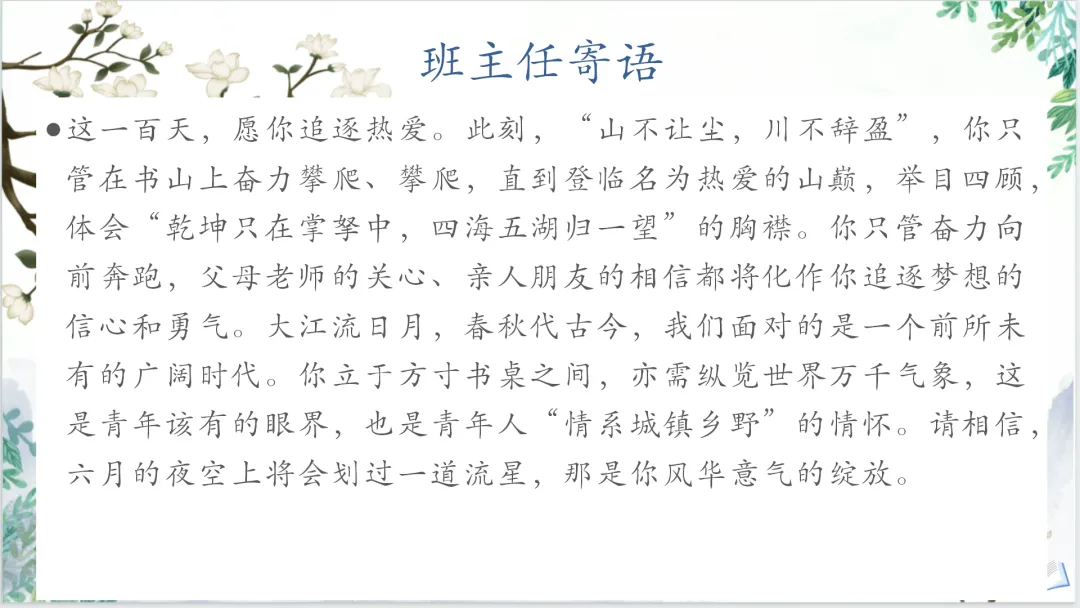 班主任寄语
●这一百天，愿你追逐热爱。此刻，“山不让尘，川不辞盈”，你只
管在书山上奋力攀爬、攀爬，直到登临名为热爱的山巅，举目四顾，
体会“乾坤只在掌拏中，四海五湖归一望”的胸襟。你只管奋力向
前奔跑，父母老师的关心、亲人朋友的相信都将化作你追逐梦想的
信心和勇气。大江流日月，春秋代古今，我们面对的是一个前所未
有的广阔时代。你立于方寸书桌之间，亦需纵览世界万千气象，这
是青年该有的眼界，也是青年人“情系城镇乡野”的情怀。请相信，
六月的夜空上将会划过一道流星，那是你风华意气的绽放。